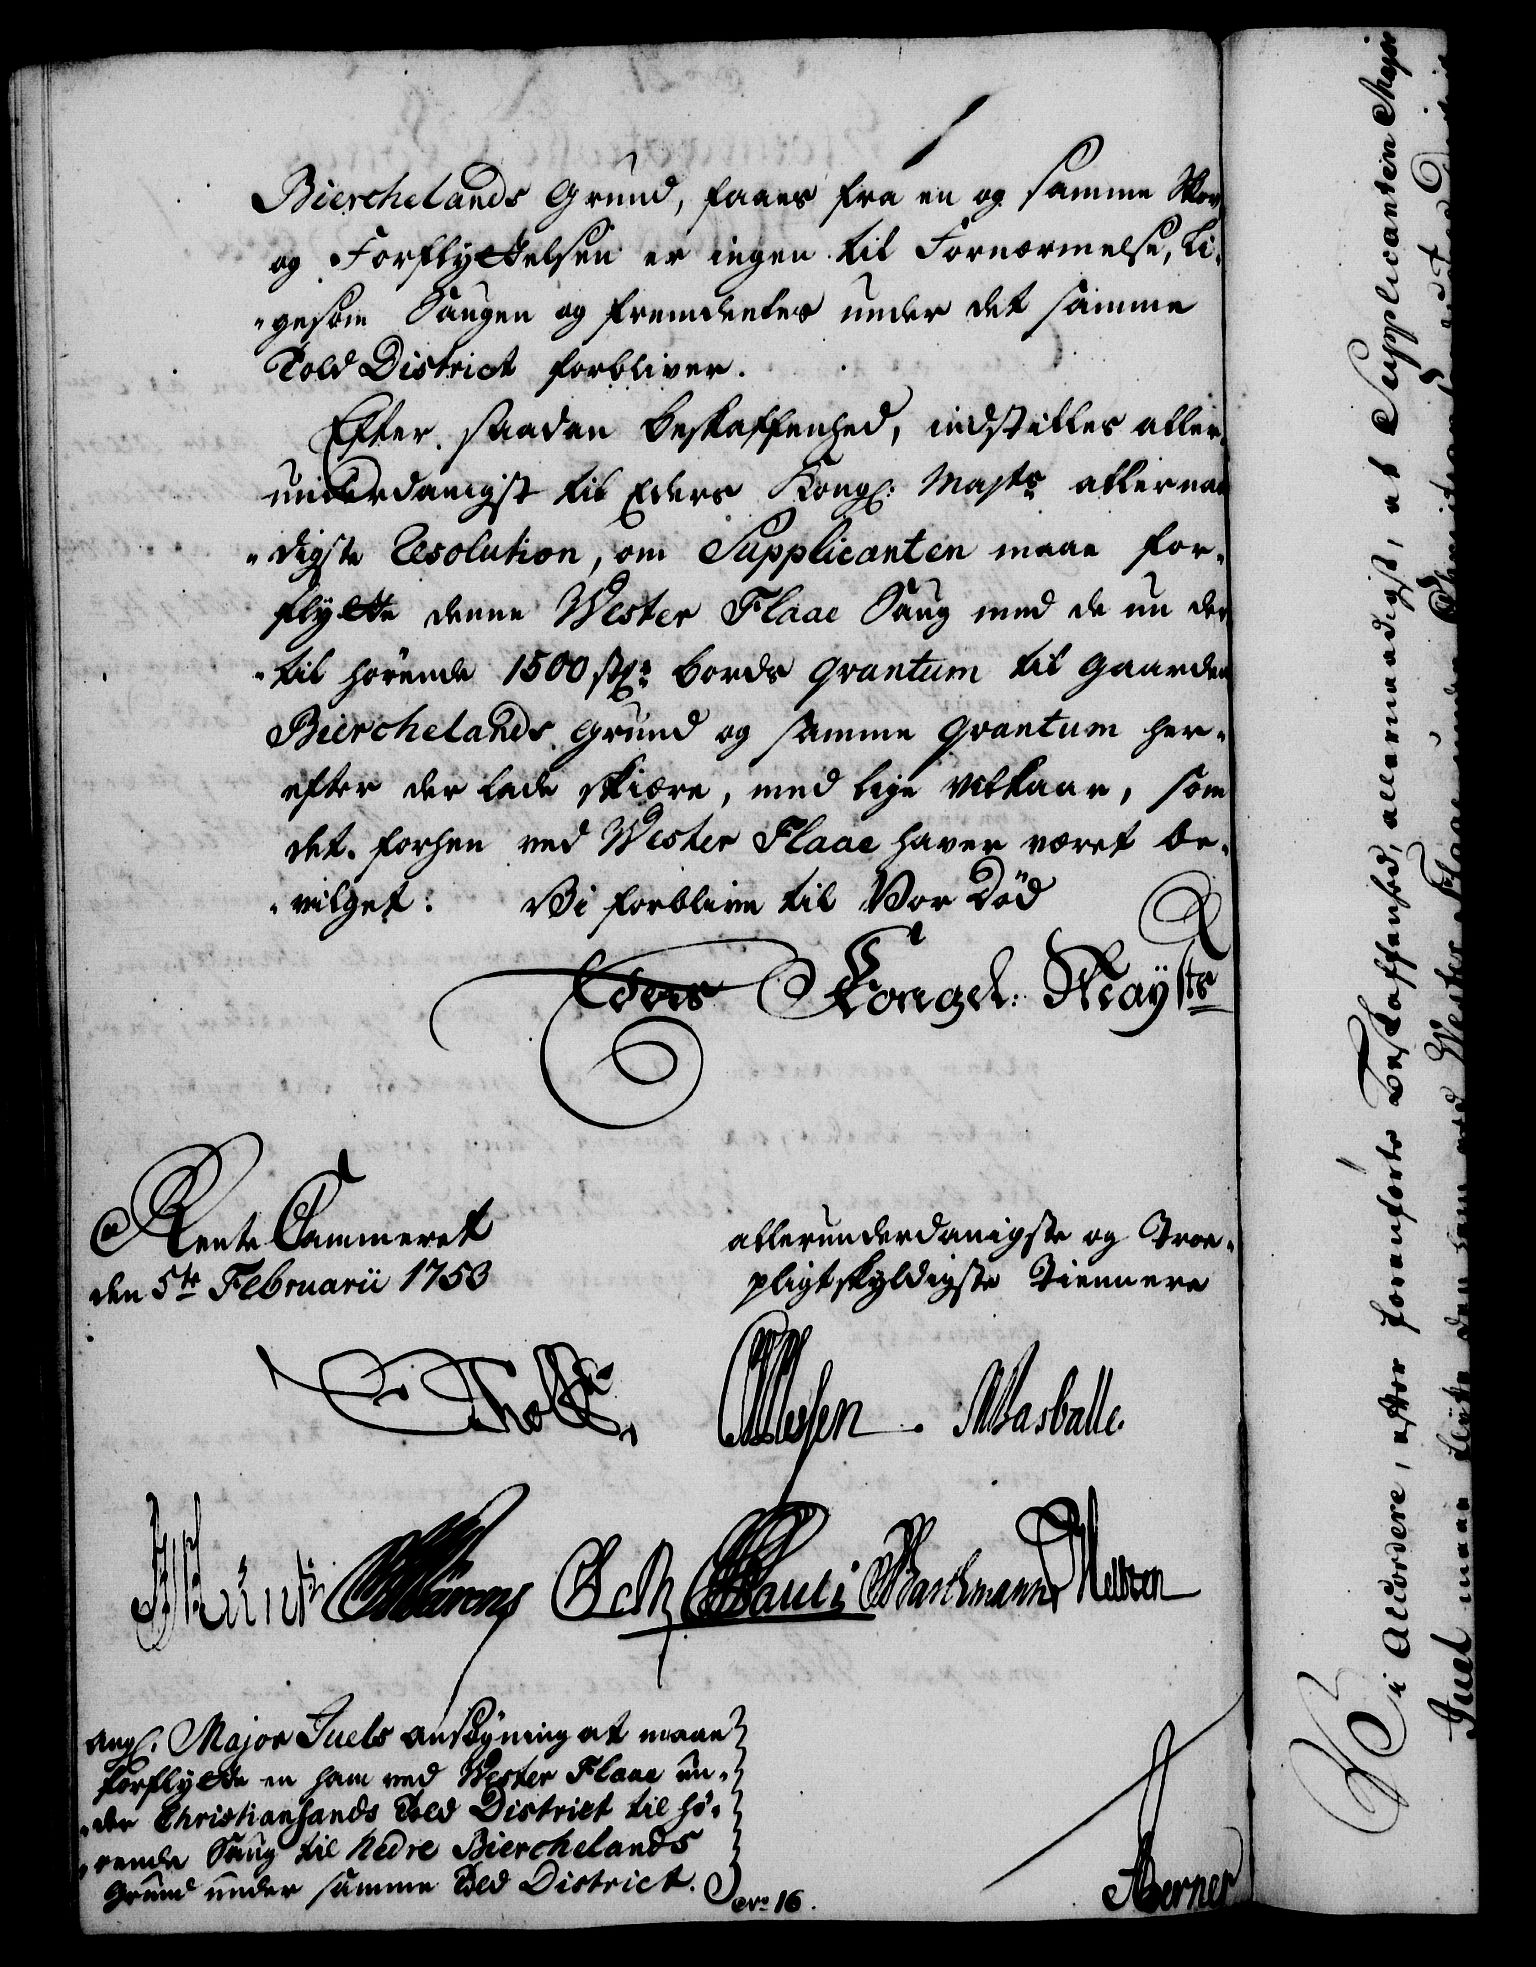 Bierchelands Grund, faaes fra en og samme Skov,
og Forflyttelsen er ingen til Fornærmelse, li-
"gesom Saugen og fremdeeles under det samme
Told District forbliver.
Efter saadan beskaffenhed, indstilles aller-
underdanigst til Eders Kongl: Mayts allernaa
"digste Resolution, om Supplicanten maae for-
flytte denne Wester Flaae Saug med de nu der
"til hörende 1500 st: bords qvantum til Gaarden
Bierchelands Grund og samme qvantum her-
efter der lade skiære, med lige vilkaar, som
det forhen ved Wester Flaae haver været be-
"vilget: Vi forblive til Vor Död
Eders Kongel: Mayts
Rente Cammeret
den 5te Februarii 1753
allerunderdanigste og Troe-
pligtskyldigste Tienere
Holst
Wasballe.
Pauli
Barthmann
ang: Major Juels ansögning at maae
forflytte en ham ved Wester Flaae un-
"der Christiansands Told District til hö-
"rende Saug til Nedre Bierchelands
Grund under samme Told District.
No: 16.
Berner
Vi Accordere, efter foranförte Beskaffenhed, allernaadigst, at Supplicanten Major
Juel maae flötte den ham ved Wester Flaae under Christiansands Told District